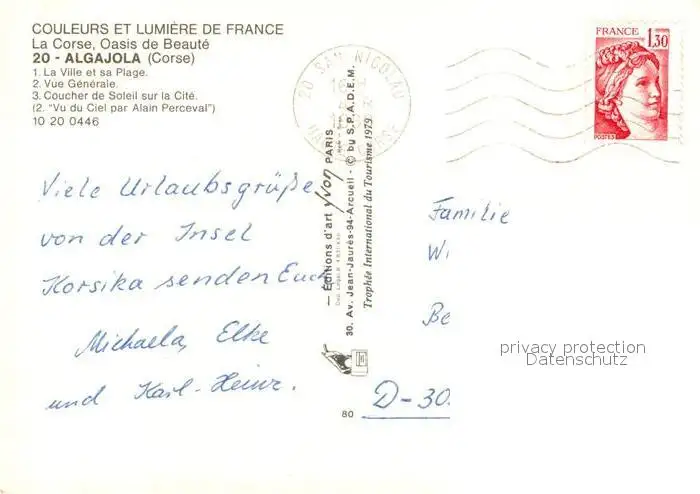 COULEURS ET LUMIÈRE DE FRANCE
La Corse, Oasis de Beauté
20 - ALGAJOLA (Corse)
1. La Ville et sa Plage.
2. Vue Générale.
3. Coucher de Soleil sur la Cité.
(2. "Vu du Ciel par Alain Perceval")
10 20 0446
20 SAN NICOLAO
FRANCE
1,30
POSTES
Viele Urlaubsgrüße
von der Insel
Korsika senden Euch
Michaela, Elke
und Karl-Heinz.
— Éditions d'art yvon PARIS
30. Av. Jean-Jaurès-94-Arcueil - © by S.P.A.D.E.M.
Trophée International du Tourisme 1979
80
Familie
Wi
Be
D-30
privacy protection
Datenschutz